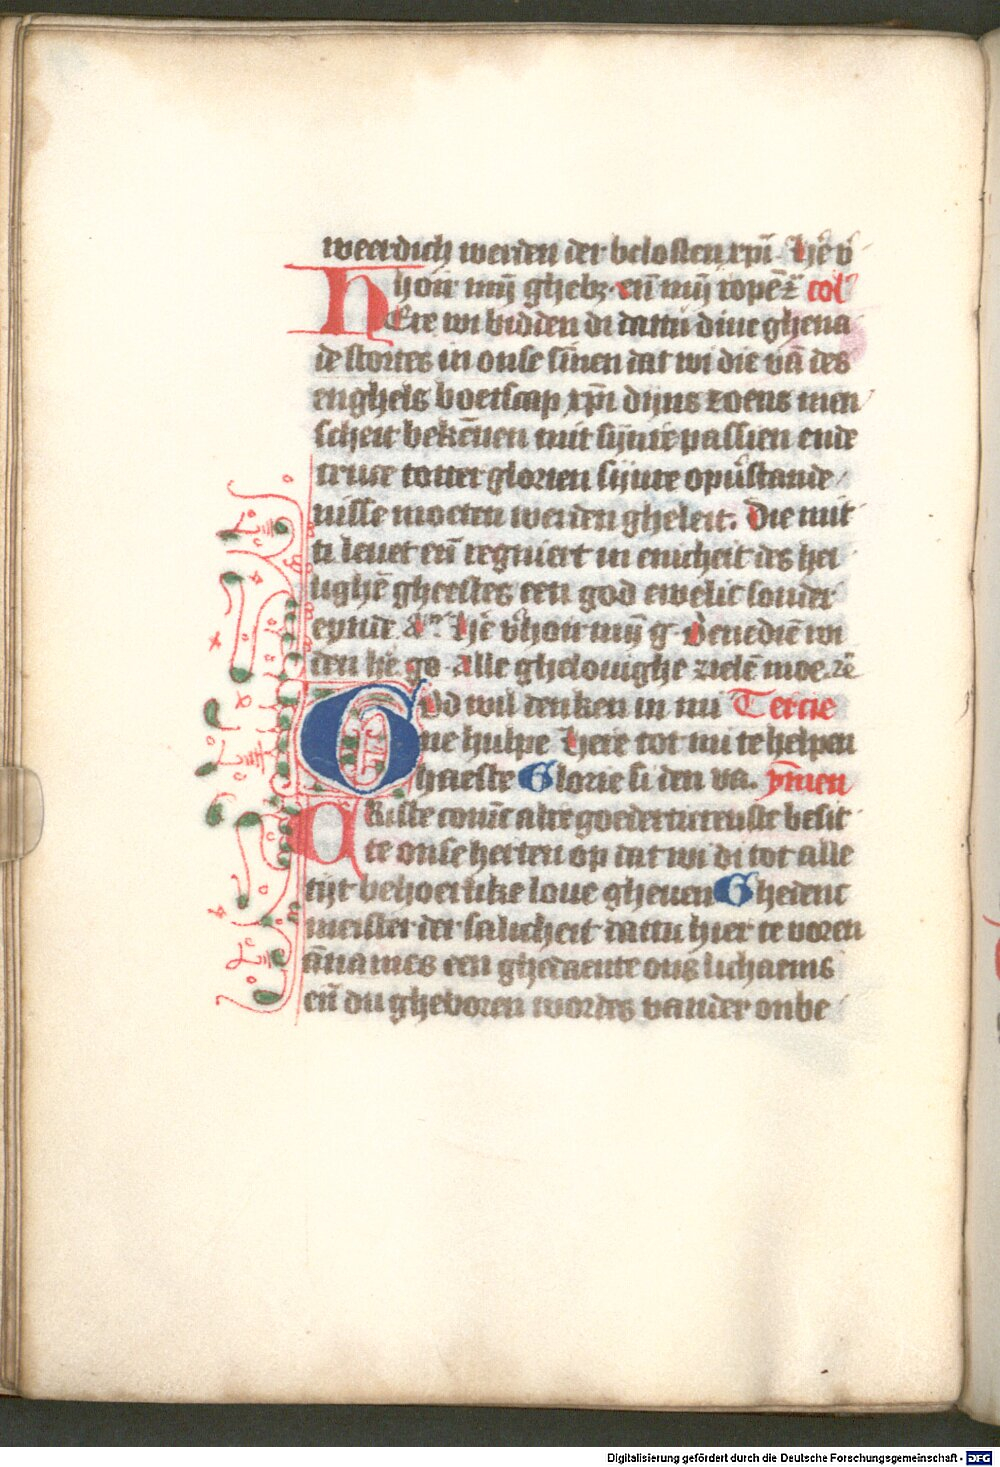 weerdich werden der beloften xpī. hē v̄
hoir mijn ghebz. eñ mijn ropē ⁊̄ col̄
HEre wi bidden di dattu dine ghena
de stortes in onse sinnen dat wi die vā des
enghels boetscap xpī dijns zoens men
scheit bekēnen mit sijnre passien ende
cruce totter glorien sijnre opūstande
nisse moeten werden gheleit. Die mit
ti leuet eñ regniert in enicheit des hei
lighē gheestes een god ewelic sonder
eynde. am̄. hē v̄hoir mijn g. Benediē wi
den hē. go. alle ghelouighe zielē moe. rē
GOd wil denken in mi Tercie
ne hulpe here tot mi te helpen
haeste Glorie si den va. ymen
CRiste comt alre goedertierenste besit
te onse herten op dat wi di tot alle
tijt behoerlike loue gheuen Ghedenc
meister der salicheit dattu hier te voren
ānames een ghedaente ons lichaems
eñ du gheboren wordes vander onbe
Digitalisierung gefördert durch die Deutsche Forschungsgemeinschaft - DFG